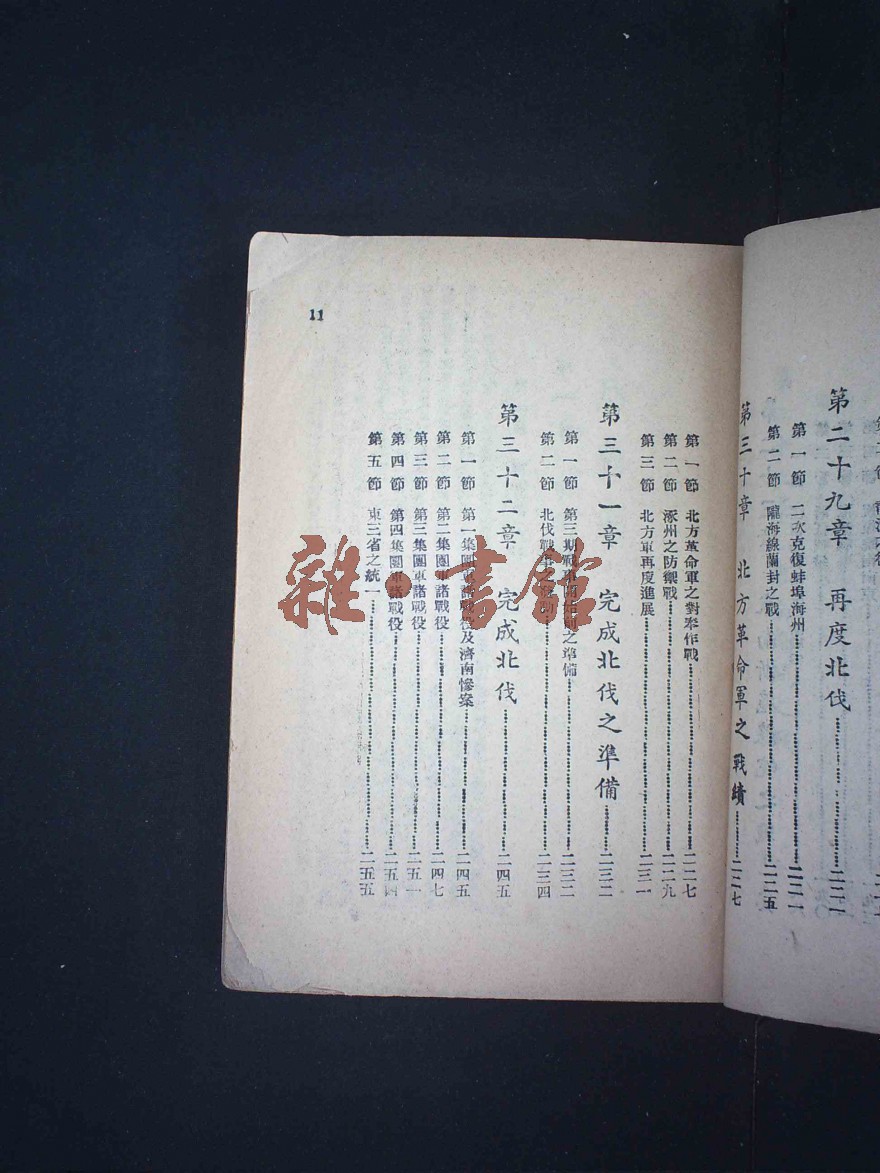 第二十九章 再度北伐
第一節 二次克復蚌埠海州……二二一
第二節 隴海線蘭封之戰……二二五
第三十章 北方革命軍之戰績……二二七
第一節 北方革命軍之對奉作戰……二二七
第二節 涿州之防禦戰……二二九
第三節 北方軍再度進展……二三一
第三十一章 完成北伐之準備……二三二
第一節 第三期戰 之準備……二三二
第二節 北伐戰事之 ……二三四
第三十二章 完成北伐……二四五
第一節 第一集團軍諸戰役及濟南慘案……二四五
第二節 第二集團軍諸戰役……二四七
第三節 第三集團軍諸戰役……二五一
第四節 第四集團軍諸戰役……二五四
第五節 東三省之統一……二五五
11
雜·書館